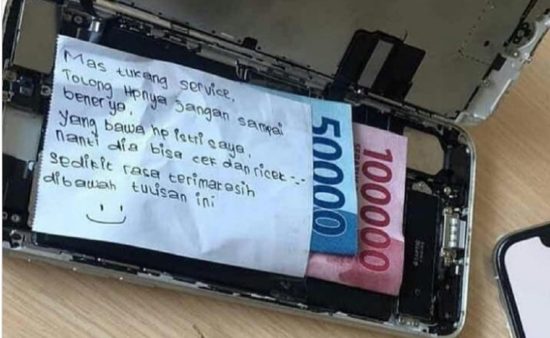 Mas tukang service,
Tolong Hpnya Jangan sampai
bener ya,
Yang bawa hp istri saya,
nanti dia bisa cek dan ricek -.-
Sedikit rasa terimakasih
dibawah tulisan ini
50000
100000